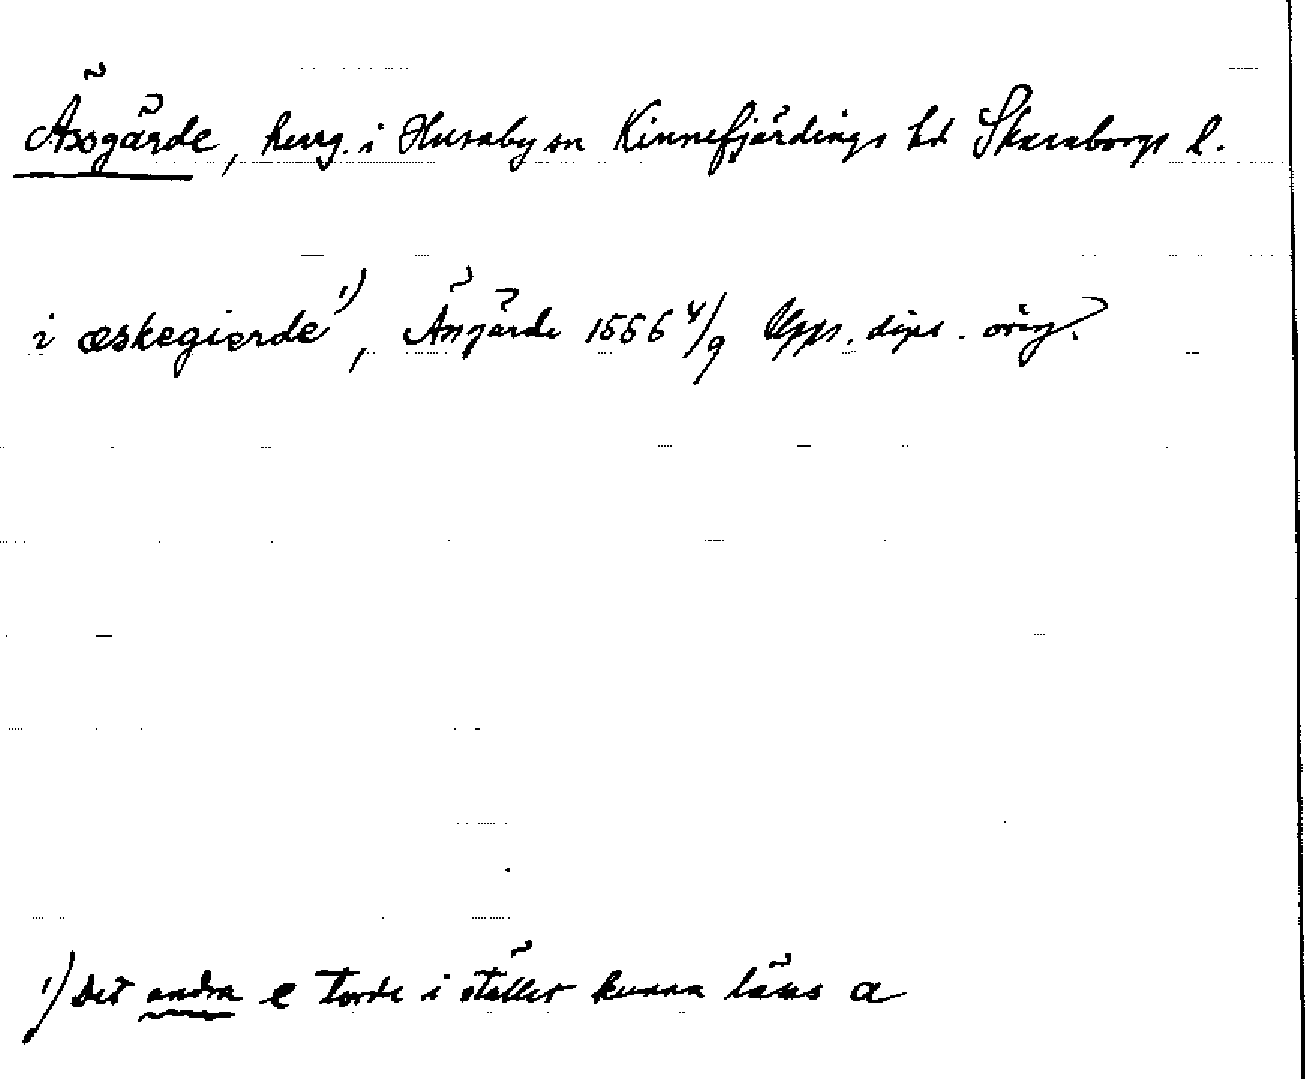 Äsogärde, herrg. i Husaby sn Kinnefjärdings hd Skaraborgs l.
i æskegierde ¹), Ängärde 1556 4/9 Upps. dips. orig.
¹) Det andra e torde i stället kunna läsas a